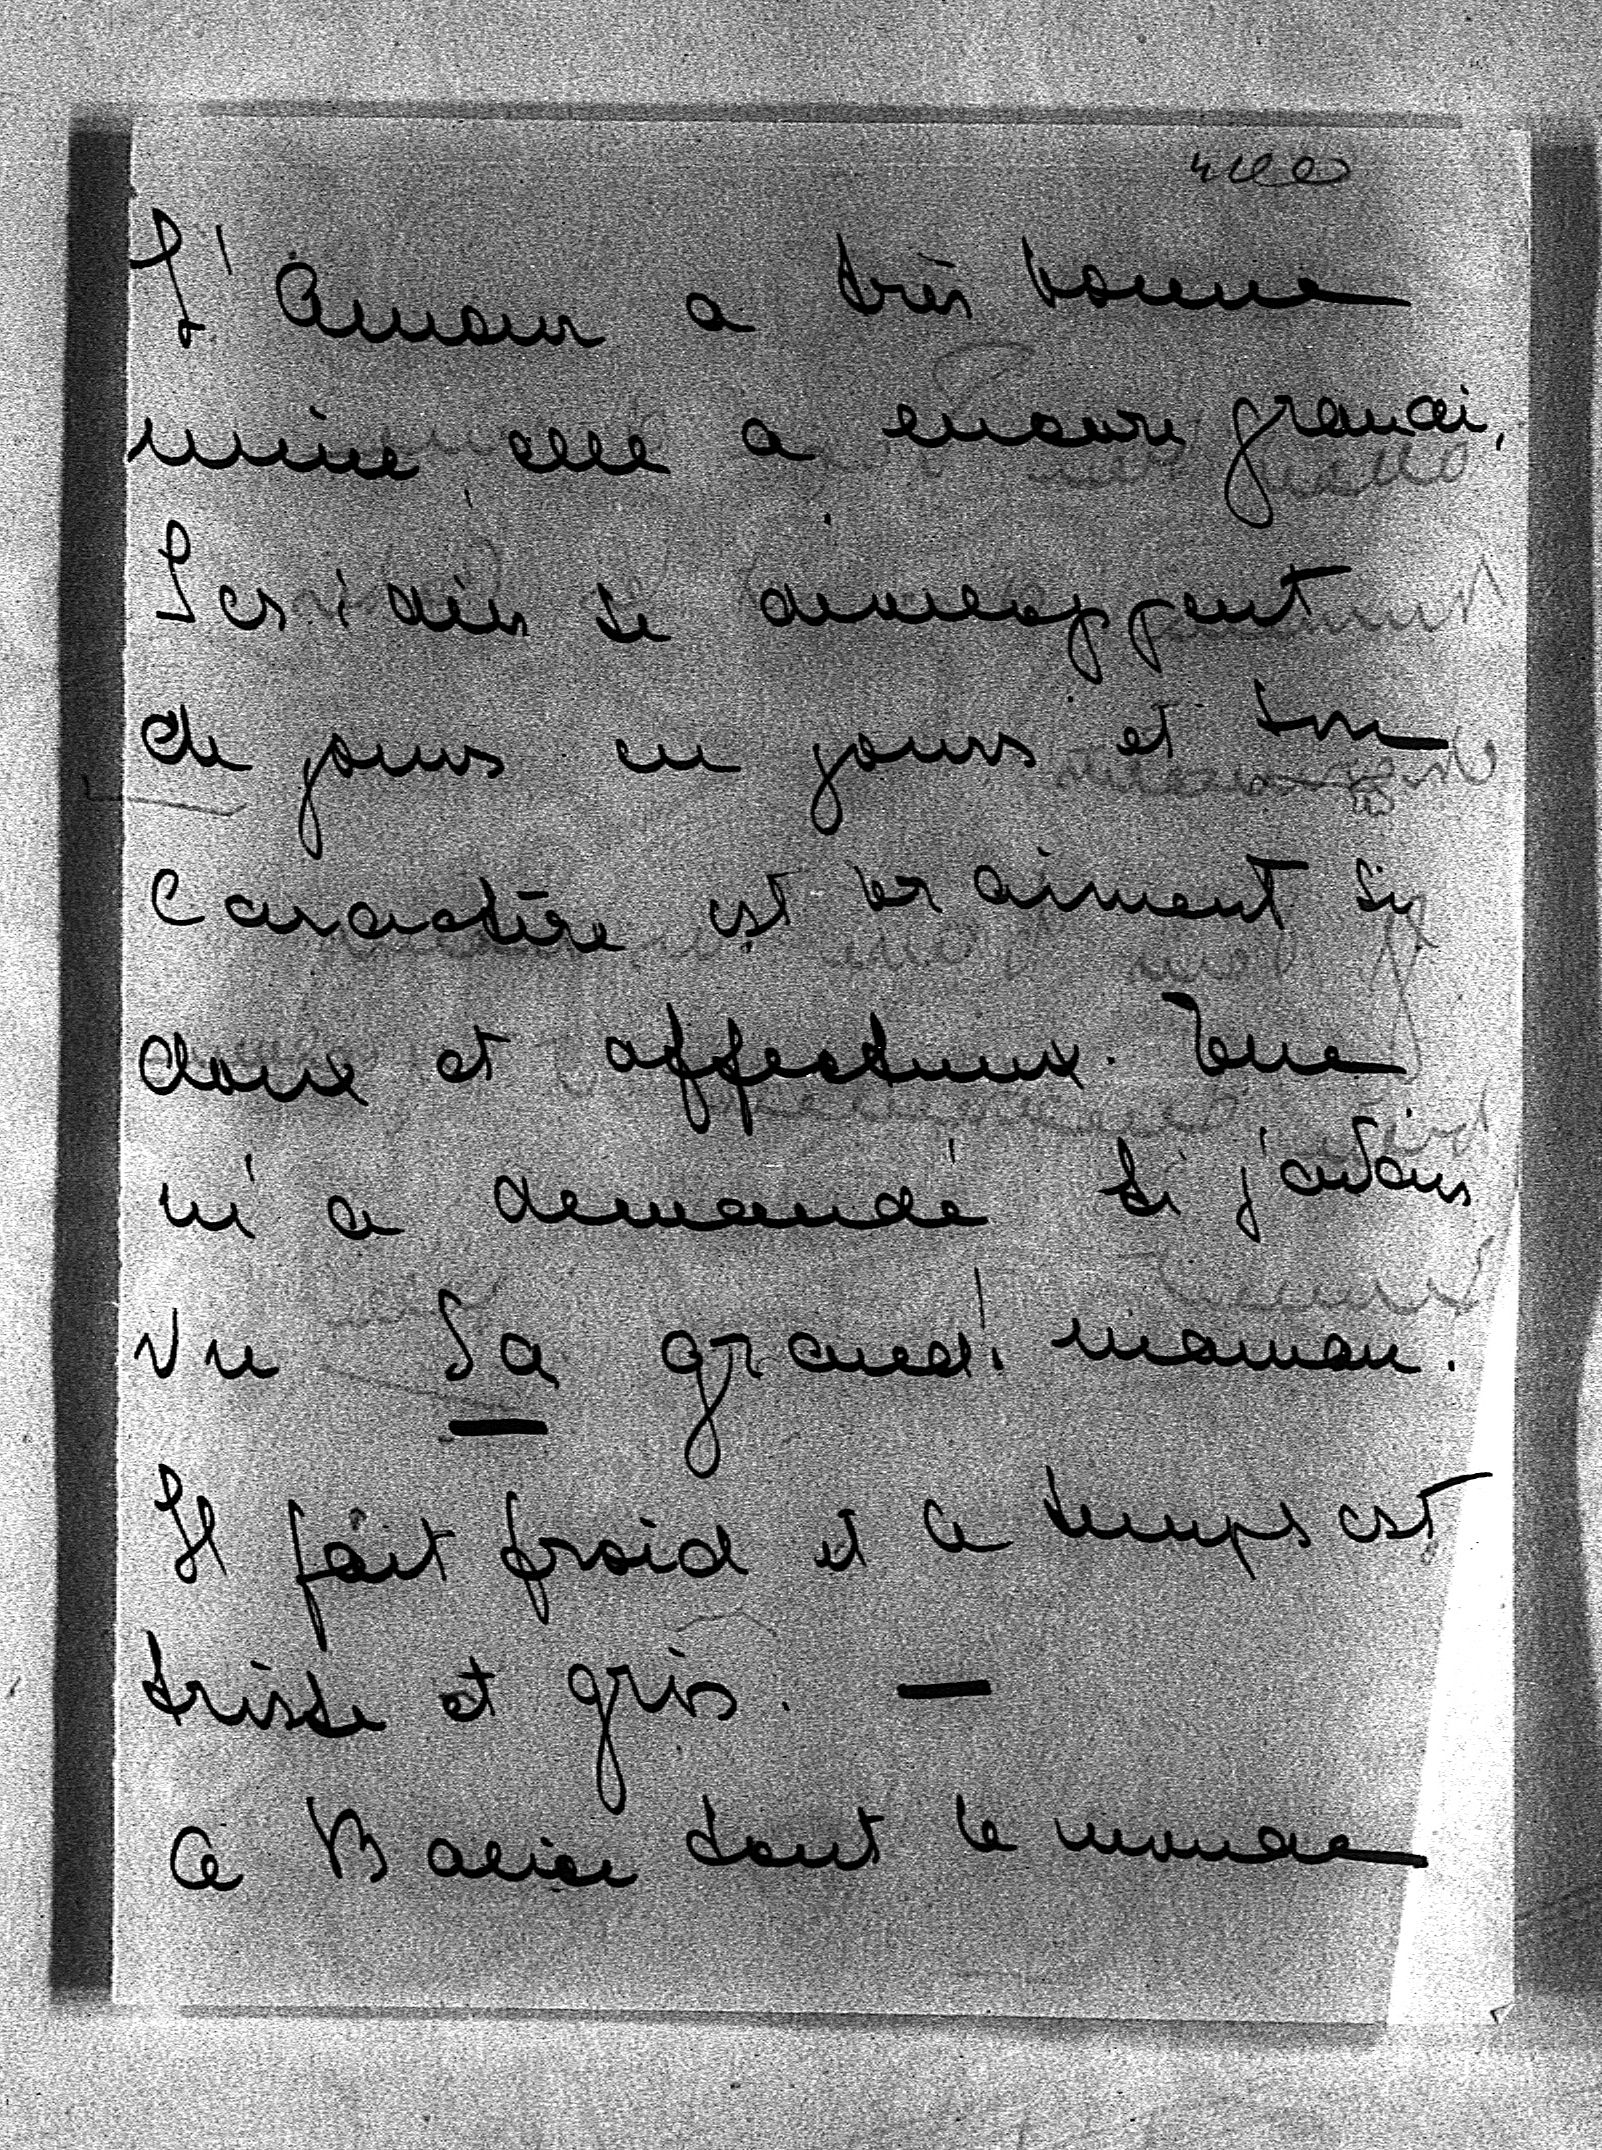 L'Amour a très bonne
mine elle a encore grandi,
Ses idées se développent
de jours en jours et son
Caractère est vraiment si
doux et affectueux. Elle
m'a demandé si j'avais
vu Sa grand' maman.
Il fait froid et le temps est
triste et gris. —
A Balier tout le monde